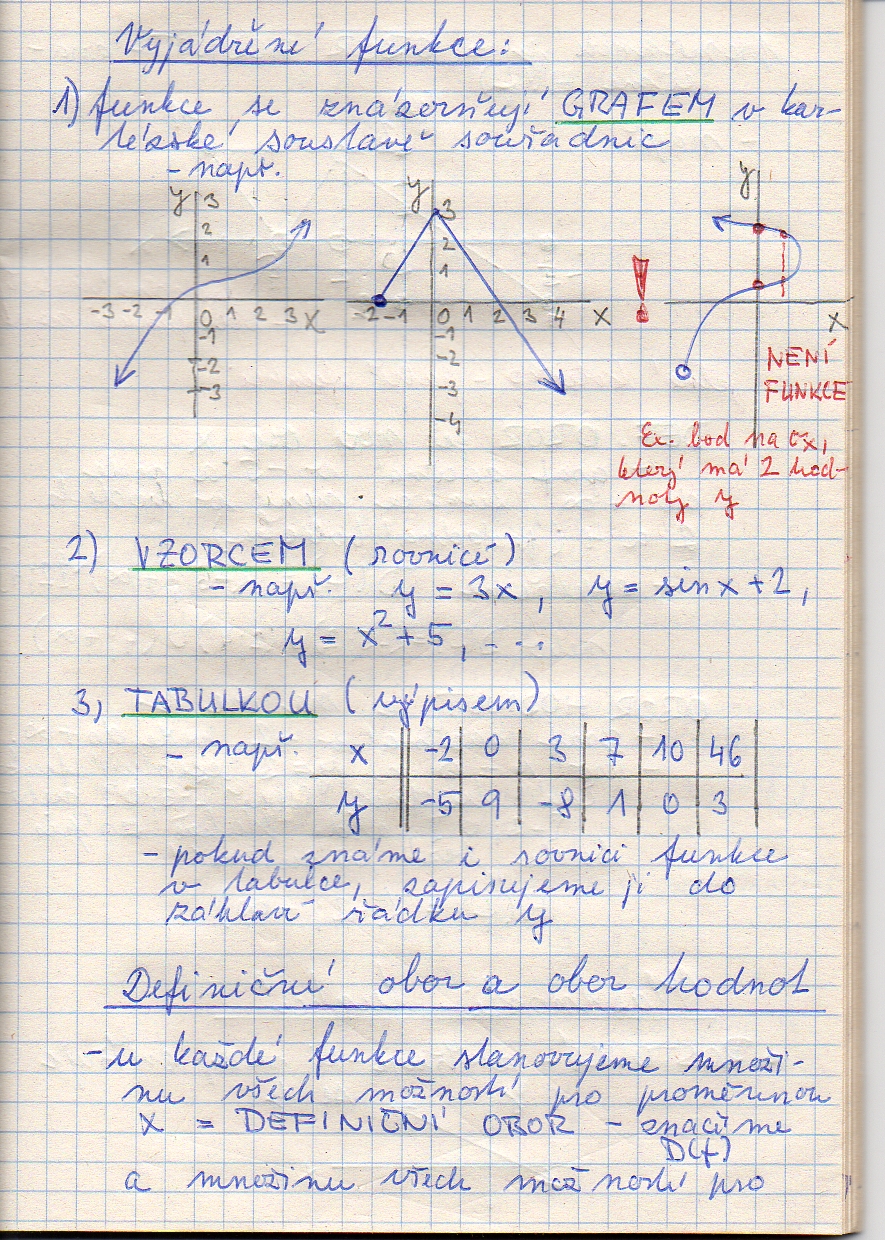 Vyjádření funkce:
1) funkce se znázorňují GRAFEM v kar-
tézské soustavě souřadnic
- např.
y 3 2 1 -3 -2 -1 0 1 2 3 x -1 -2 -3
y 3 2 1 -2 -1 0 1 2 3 4 x -1 -2 -3 -4
! y x
NENÍ
FUNKCE
Ex. bod na o x,
který má 2 hod-
noty y
2) VZORCEM (rovnicí)
- např. y = 3x, y = sin x + 2,
y = x² + 5, ...
3, TABULKOU (výpisem)
- např. x -2 0 3 7 10 46
y -5 9 -8 1 0 3
- pokud známe i rovnici funkce
v tabulce, zapisujeme ji do
záhlaví řádku y
Definiční obor a obor hodnot
- u každé funkce stanovujeme množi-
nu všech možností pro proměnnou
x = DEFINIČNÍ OBOR - značíme
D(f)
a množinu všech možností pro